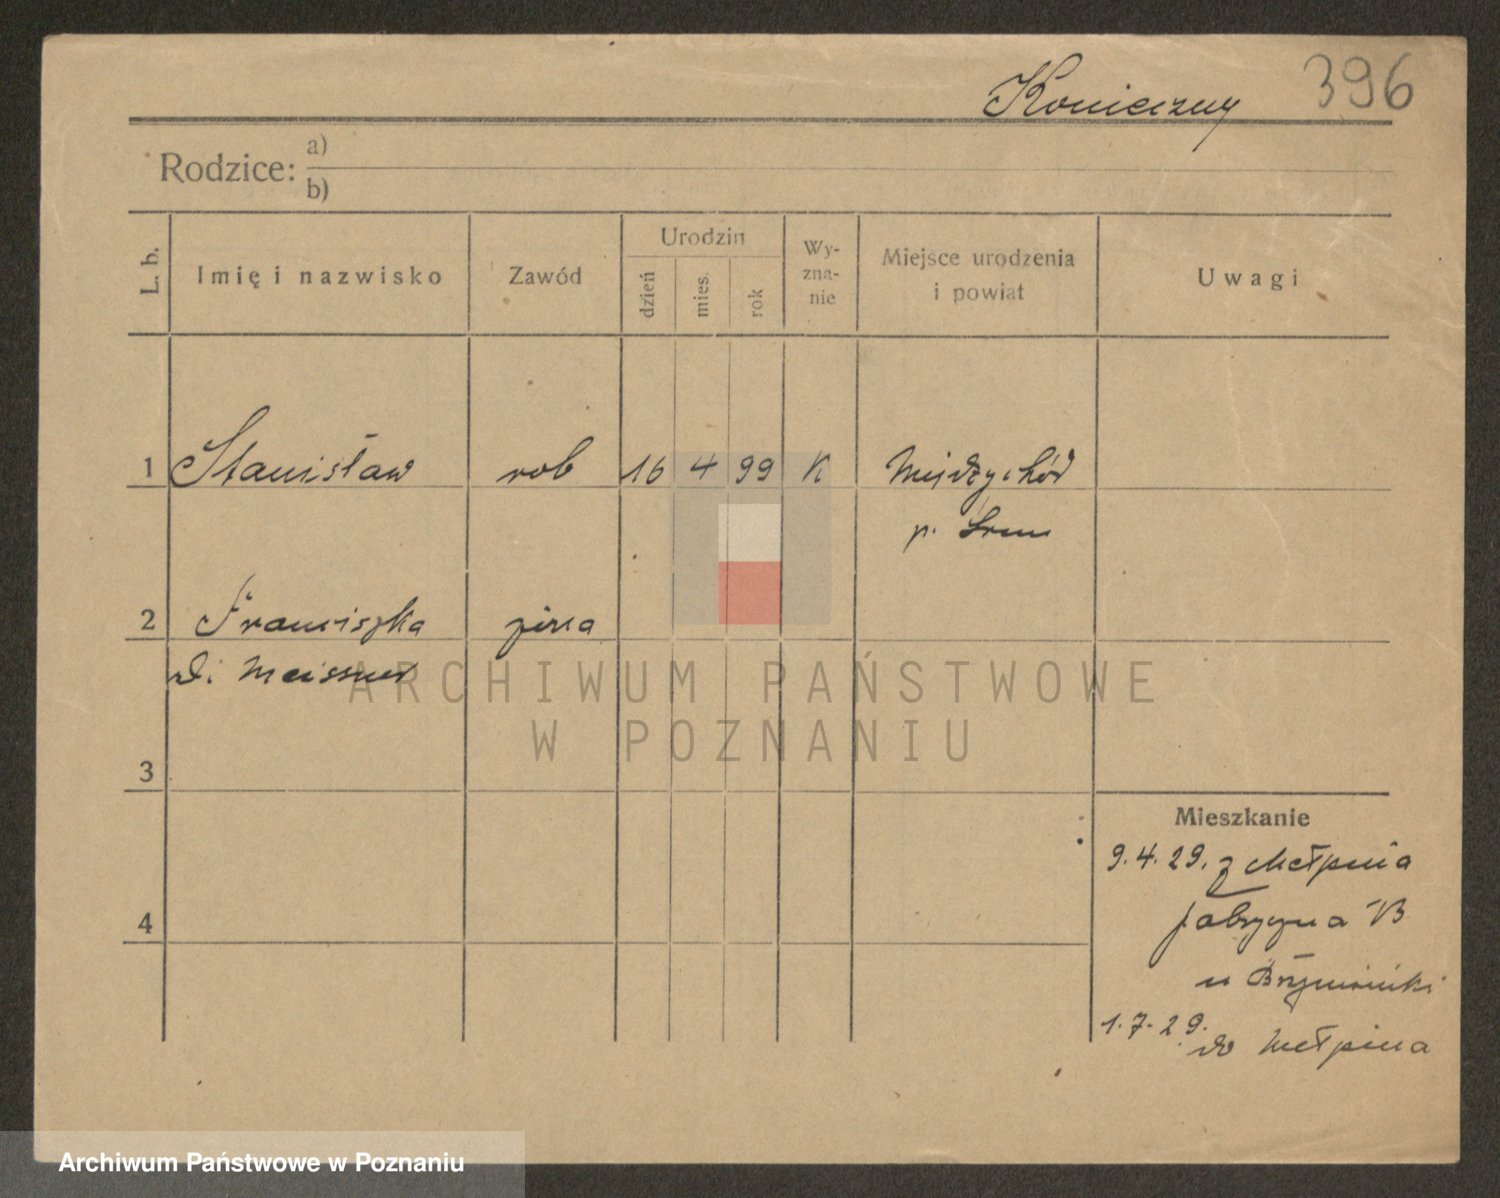 Konieczny 396
Rodzice: a)
b)
L. b. Imię i nazwisko Zawód Urodzin dzień mies. rok Wy-zna-nie Miejsce urodzenia i powiat Uwagi
1 Stanisław rob 16 4 99 K Międzychód
p. Śrem
2 Franciszka żona
d. Meissner
ARCHIWUM PAŃSTWOWE
W POZNANIU
3
4
Mieszkanie
9.4.29. z Mełpina
fabryczna
u
1.7.29.
do Mełpina
Archiwum Państwowe w Poznaniu